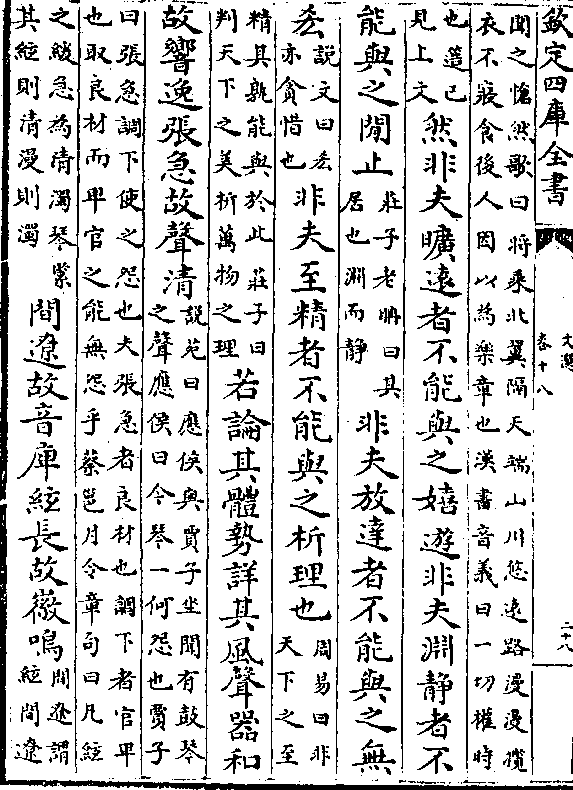 欽定四庫全書
文選
卷十八
二十八
聞之愴然歌曰將乘北翼隔天端山川悠遠路漫漫攬
衣不寐食後人因以為樂章也漢書音義曰一切權時
也簉已見上文然非夫曠遠者不能與之嬉遊非夫淵静者不
能與之閒止莊子老聃曰其居也淵而静非夫放達者不能與之無
𠫤說文曰𠫤亦貪惜也非夫至精者不能與之析理也周易曰非天下之至
精其孰能與於此莊子曰判天下之美析萬物之理若論其體勢詳其風聲器和
故響逸張急故聲清說苑曰應侯與賈子坐聞有鼓琴之聲應侯曰今琴一何怨也賈子
曰張急調下使之怨也夫張急者良材也調下者官卑
也取良材而卑官之能無怨乎蔡邕月令章句曰凡絃
之緩急為清濁琴緊其絃則清漫則濁間遼故音庳絃長故徽鳴間遼謂絃間遼